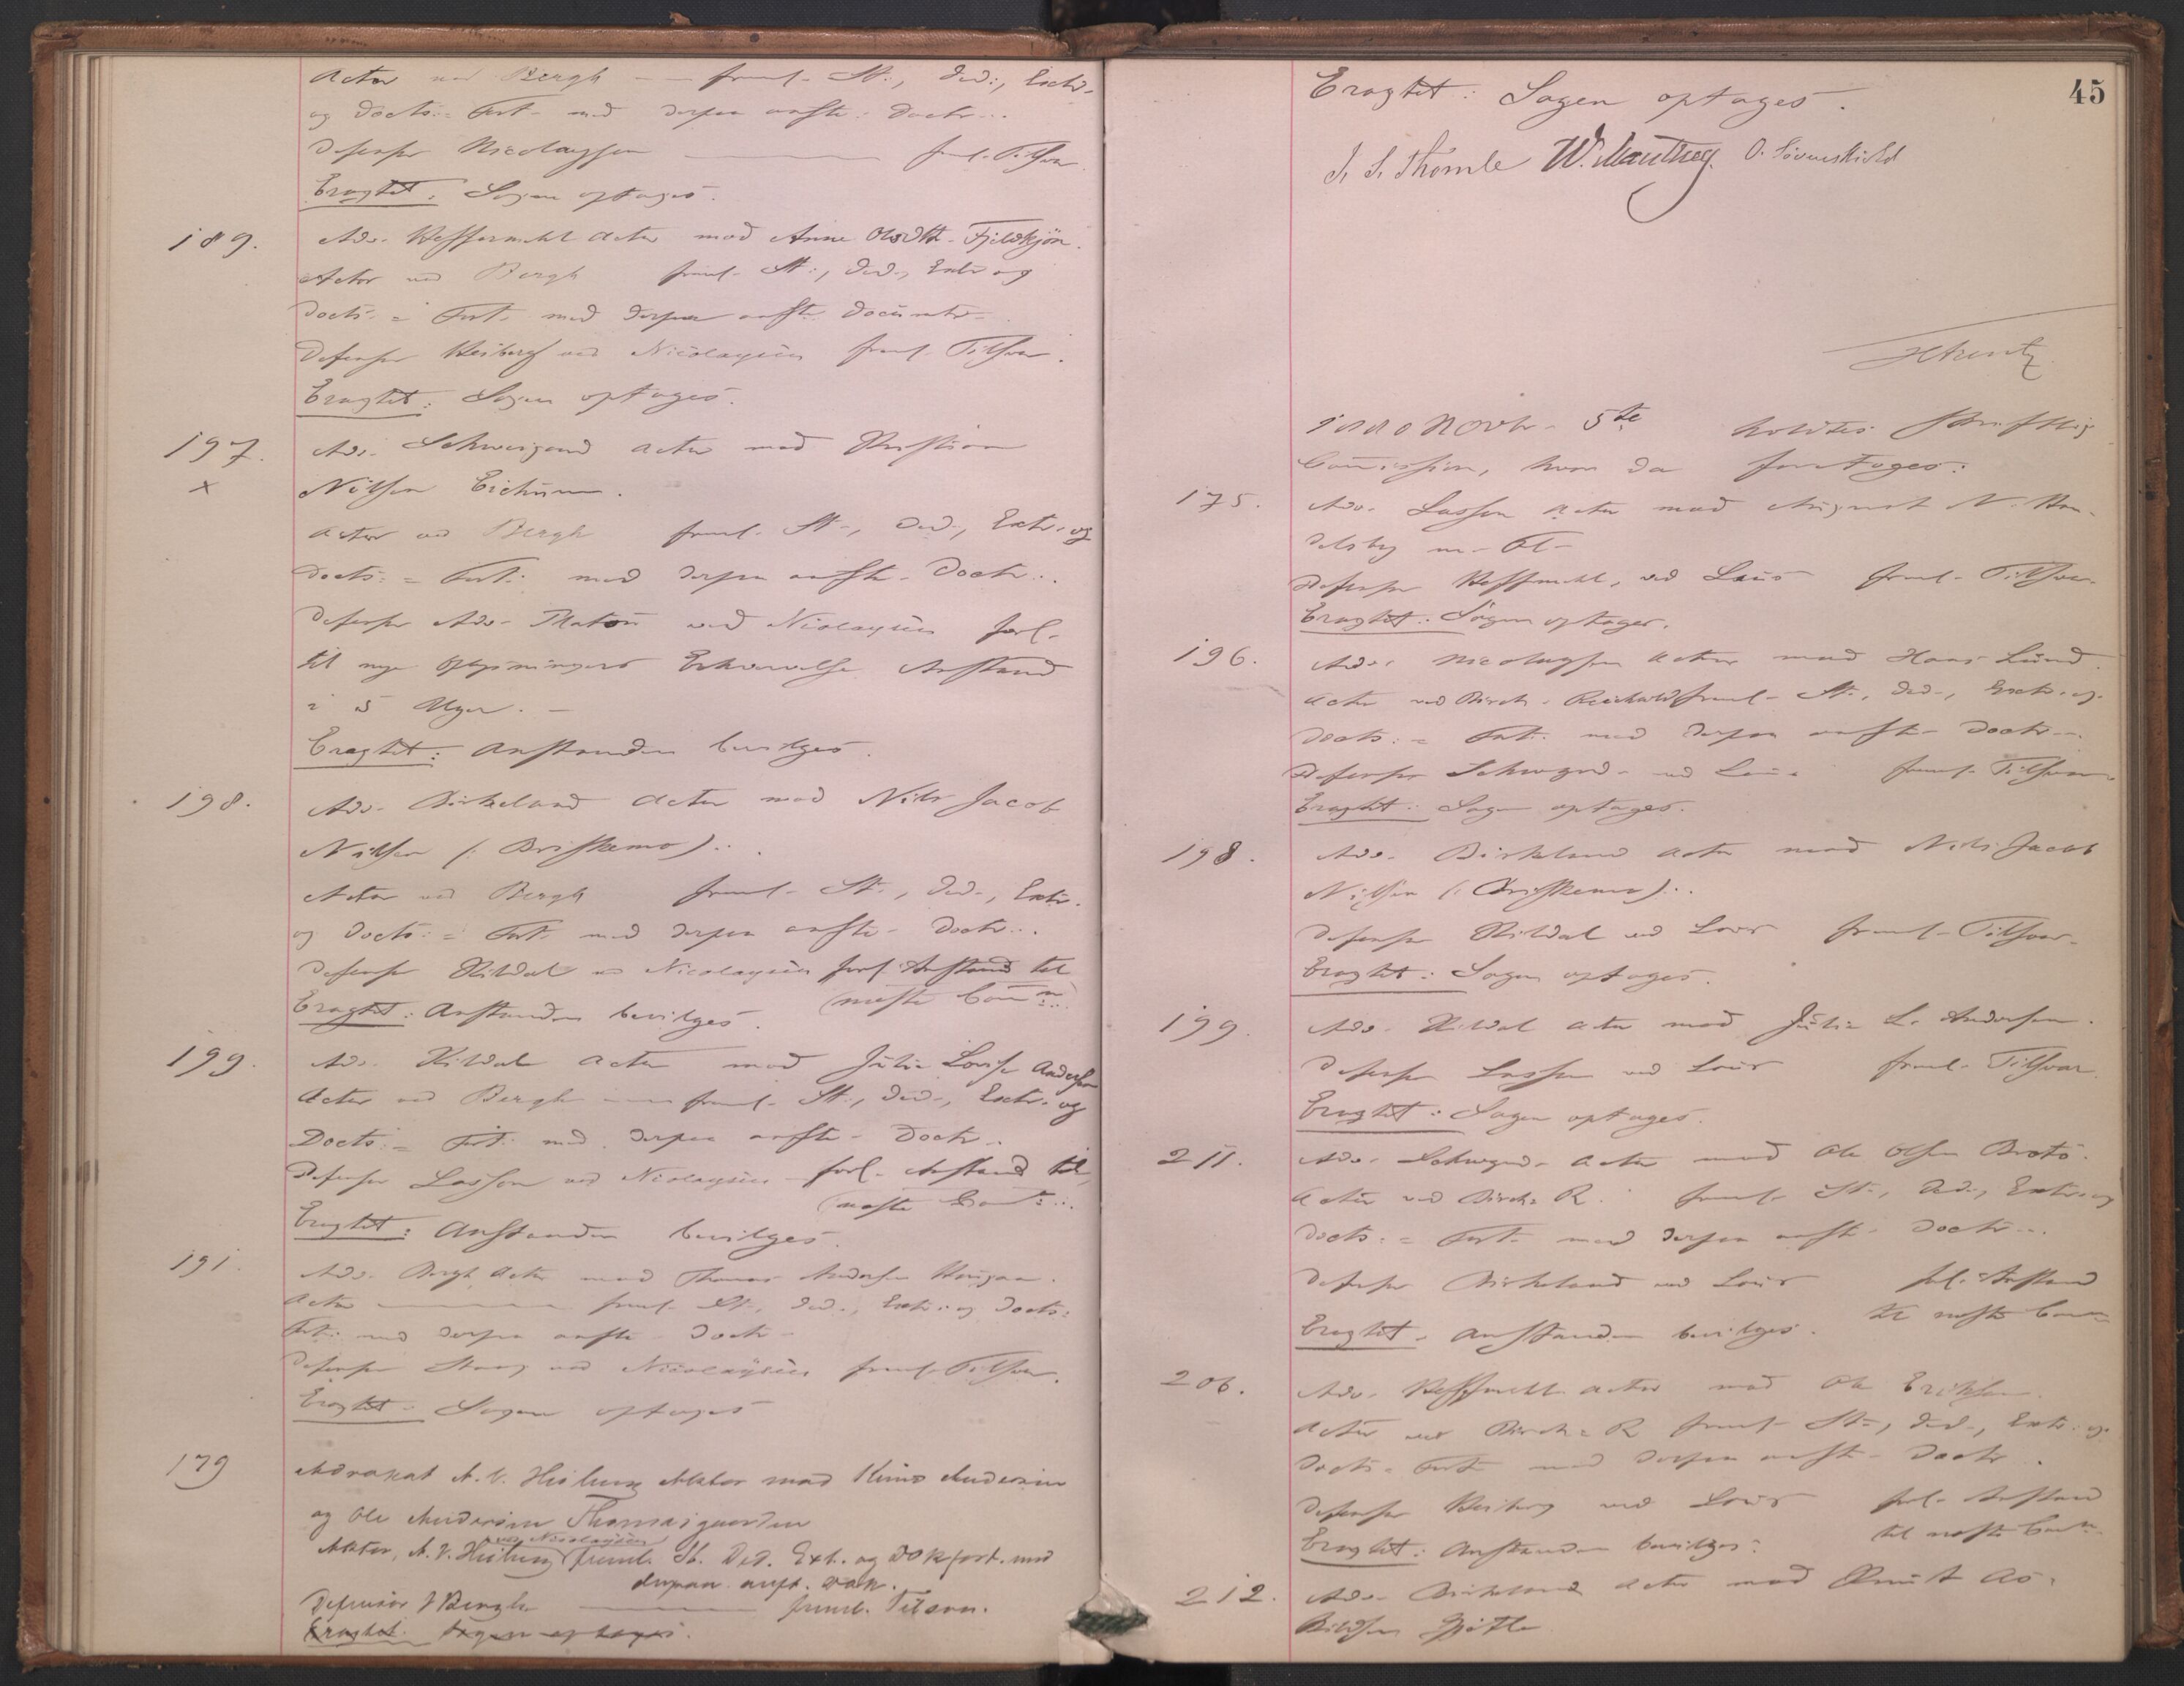 Actor ved Bergh — — freml. St:, Ded:, Extr.
og Docts: = Fort. med derpaa anførte Docts...
Defensor Nicolaysen —— freml. Tilsvar.
Eragtet: Sagen optages.
189. Adv. Hesselberg Actor mod Anne Olsdtr. Fjeldkjøn.
Actor ved Bergh freml. St:, Ded., Extr. og
Docts. = Fort. med derpaa anførte Documtr.
Defensor Heiberg ved Nicolaysen freml. Tilsvar.
Eragtet: Sagen optages.
197. Adv. Schweigaard Actor mod Kristian
x Nilsen
Actor ved Bergh freml. St., Ded., Extr. og
Docts: = Fort. med derpaa anførte Docts...
Defensor Adv. Platou ved Nicolaysen forl.
til nye Oplysningers Erhvervelse Anstand
i 5 Uger. —
Eragtet: Anstanden bevilges.
198. Adv. Birkeland Actor mod Nils Jacob
Nilsen (: Briskemo)..
Actor ved Bergh freml. St., Ded., Extr.
og Docts: = Fort. med derpaa anførte Docts...
Defensor Kildal ved Nicolaysen forl. Anstand til
Eragtet: Anstanden bevilges. (næste Comn...
199. Adv. Kildal Actor mod Julie Lovise Andersen
Actor ved Bergh — freml. St:, Ded., Extr. og
Docts: = Fort. med derpaa anførte Docts..
Defensor Lasson ved Nicolaysen forl. Anstand til
(næste Com...
Eragtet: Anstanden bevilges.
191. Adv. Bergh Actor mod Thomas Andersen
Actor —— freml. St., Ded., Extr. og Docts:
Fort. med derpaa anførte Docts.
Defensor ved Nicolaysen freml. Tilsvar.
Eragtet: Sagen optages
179 Advokat A. V. Heiberg Aktor mod Andersen
og Ole Andersen Thomasgaarden
ved Nicolaysen
Aktor, A. V. Heiberg freml. St. Ded. Ext. og Dokfort. med
derpaa anft. Dok.
Defensor J Bergh —— freml. Tilsvar.
Eragtet. Sagen optages.
45
Eragtet: Sagen optages.
J. S. Thomle W. Manthey. O. Løvenskiold
1880 Novbr. 5te holdtes skriftlig
Commission, hvor da foretoges:
175. Adv. Lasson Actor mod August N.
m. Fl.
Defensor Hesselberg, ved Lous freml. Tilsvar.
Eragtet: Sagen optages.
196. Adv. Nicolaysen Actor mod Hans Lund.
Actor ved Birch-Reichenwald freml. St., Ded., Extr. og
Docts: = Fort. med derpaa anførte Docts...
Defensor Schwgrd. ved Lous freml. Tilsvar.
Eragtet: Sagen optages.
198. Adv. Birkeland Actor mod Nils Jacob
Nilsen (: Briskemo)..
Defensor Kildal ved Lous freml. Tilsvar.
Eragtet: Sagen optages.
199. Adv. Kildal Actor mod Julie L. Andersen.
Defensor Lasson ved Lous freml. Tilsvar.
Eragtet: Sagen optages.
211. Adv. Schwgrd. Actor mod Ole Olsen
Actor ved Birch-R. freml. St., Ded., Extr. og
Docts: = Fort. med derpaa anførte Docts...
Defensor Birkeland ved Lous forl. Anstand
til næste Com
Eragtet. Anstanden bevilges.
206. Adv. Hesselberg Actor mod Ole Eriksen
Actor ved Birch-R freml. St., Ded., Extr. og
Docts. Fort. med derpaa anførte Docts.
Defensor Heiberg ved Lous forl. Anstand
til næste Com
Eragtet: Anstanden bevilges.
212. Adv. Birkeland Actor mod Knut